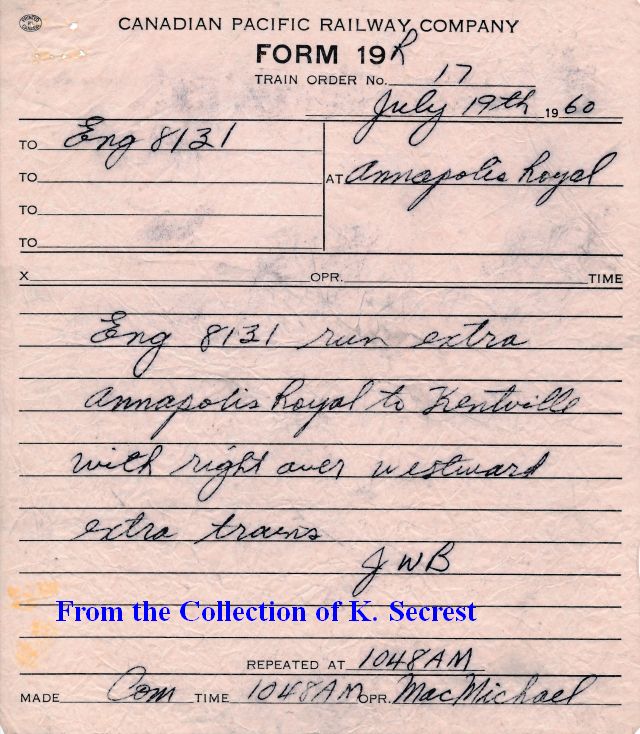 CANADIAN PACIFIC RAILWAY COMPANY
FORM 19 R
TRAIN ORDER No. 17
July 19th 1960
TO Eng 8131
TO
AT Annapolis Royal
TO
TO
X OPR. TIME
Eng 8131 run extra
Annapolis Royal to Kentville
with right over westward
extra trains
J W B
From the Collection of K. Secrest
REPEATED AT 1048 AM
MADE Com TIME 1048 AM OPR. MacMichael